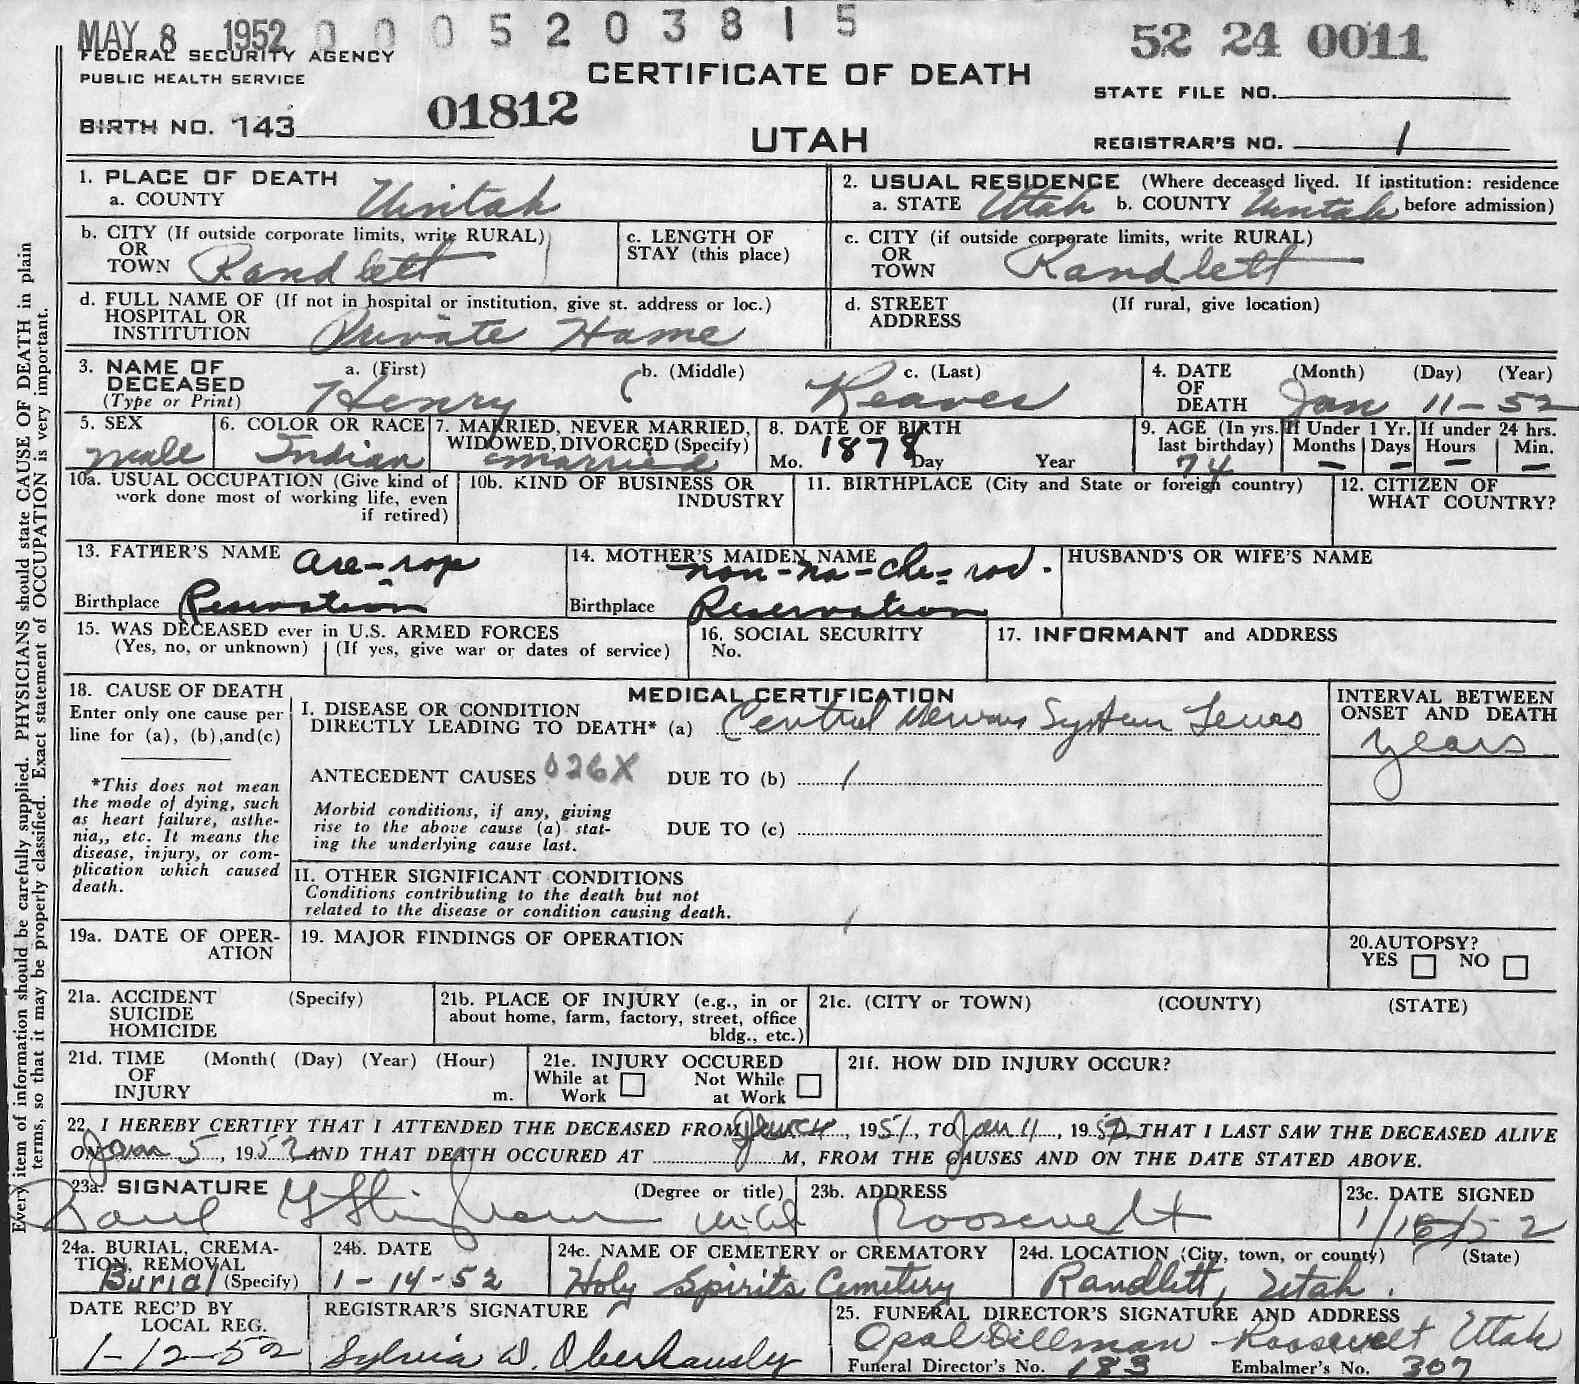 MAY 8 1952 0 0 0 5 2 0 3 8 1 5
52 24 0011
FEDERAL SECURITY AGENCY
PUBLIC HEALTH SERVICE
CERTIFICATE OF DEATH
STATE FILE NO.
BIRTH NO. 143
01812
UTAH
REGISTRAR'S NO. 1
1. PLACE OF DEATH
a. COUNTY Uintah
2. USUAL RESIDENCE (Where deceased lived. If institution: residence
a. STATE Utah b. COUNTY Uintah before admission)
b. CITY (If outside corporate limits, write RURAL)
OR
TOWN Randlett
c. LENGTH OF
STAY (this place)
c. CITY (if outside corporate limits, write RURAL)
OR
TOWN Randlett
d. FULL NAME OF (If not in hospital or institution, give st. address or loc.)
HOSPITAL OR
INSTITUTION Private Home
d. STREET (If rural, give location)
ADDRESS
3. NAME OF
DECEASED
(Type or Print)
a. (First) b. (Middle) c. (Last)
Henry Reaves
4. DATE (Month) (Day) (Year)
OF
DEATH Jan 11-52
5. SEX
male
6. COLOR OR RACE
Indian
7. MARRIED, NEVER MARRIED,
WIDOWED, DIVORCED (Specify)
married
8. DATE OF BIRTH
1878
Mo. Day Year
9. AGE (In yrs.
last birthday)
74
If Under 1 Yr.
Months Days
If under 24 hrs.
Hours Min.
– – – –
10a. USUAL OCCUPATION (Give kind of
work done most of working life, even
if retired)
10b. KIND OF BUSINESS OR
INDUSTRY
11. BIRTHPLACE (City and State or foreign country)
12. CITIZEN OF
WHAT COUNTRY?
13. FATHER'S NAME are-rop
Birthplace Reservation
14. MOTHER'S MAIDEN NAME
Birthplace Reservation
HUSBAND'S OR WIFE'S NAME
15. WAS DECEASED ever in U.S. ARMED FORCES
(Yes, no, or unknown) (If yes, give war or dates of service)
16. SOCIAL SECURITY
No.
17. INFORMANT and ADDRESS
18. CAUSE OF DEATH
Enter only one cause per
line for (a), (b),and(c)
*This does not mean
the mode of dying, such
as heart failure, asthe-
nia,, etc. It means the
disease, injury, or com-
plication which caused
death.
MEDICAL CERTIFICATION
I. DISEASE OR CONDITION
DIRECTLY LEADING TO DEATH* (a) Central Nervous System Leues
ANTECEDENT CAUSES 026X DUE TO (b)
Morbid conditions, if any, giving
rise to the above cause (a) stat-
ing the underlying cause last.
DUE TO (c)
II. OTHER SIGNIFICANT CONDITIONS
Conditions contributing to the death but not
related to the disease or condition causing death.
INTERVAL BETWEEN
ONSET AND DEATH
years
19a. DATE OF OPER-
ATION
19. MAJOR FINDINGS OF OPERATION
20.AUTOPSY?
YES NO
21a. ACCIDENT (Specify)
SUICIDE
HOMICIDE
21b. PLACE OF INJURY (e.g., in or
about home, farm, factory, street, office
bldg., etc.)
21c. (CITY or TOWN) (COUNTY) (STATE)
21d. TIME (Month( (Day) (Year) (Hour)
OF
INJURY m.
21e. INJURY OCCURED
While at Not While
Work at Work
21f. HOW DID INJURY OCCUR?
22. I HEREBY CERTIFY THAT I ATTENDED THE DECEASED FROM, 1951, TO Jan 11, 1952 THAT I LAST SAW THE DECEASED ALIVE
ON Jan 5, 1952 AND THAT DEATH OCCURED AT M, FROM THE CAUSES AND ON THE DATE STATED ABOVE.
23a. SIGNATURE (Degree or title)
Paul G Stringham M.D.
23b. ADDRESS
Roosevelt
23c. DATE SIGNED
24a. BURIAL, CREMA-
TION, REMOVAL
Burial (Specify)
24b. DATE
1-14-52
24c. NAME OF CEMETERY or CREMATORY
Holy Spirits Cemetery
24d. LOCATION (City, town, or county) (State)
Randlett, Utah.
DATE REC'D BY
LOCAL REG.
1-12-52
REGISTRAR'S SIGNATURE
Sylvia D. Oberhansly
25. FUNERAL DIRECTOR'S SIGNATURE AND ADDRESS
Opal Dillman - Roosevelt Utah
Funeral Director's No. 183 Embalmer's No. 307
Every item of information should be carefully supplied. PHYSICIANS should state CAUSE OF DEATH in plain
terms, so that it may be properly classified. Exact statement of OCCUPATION is very important.